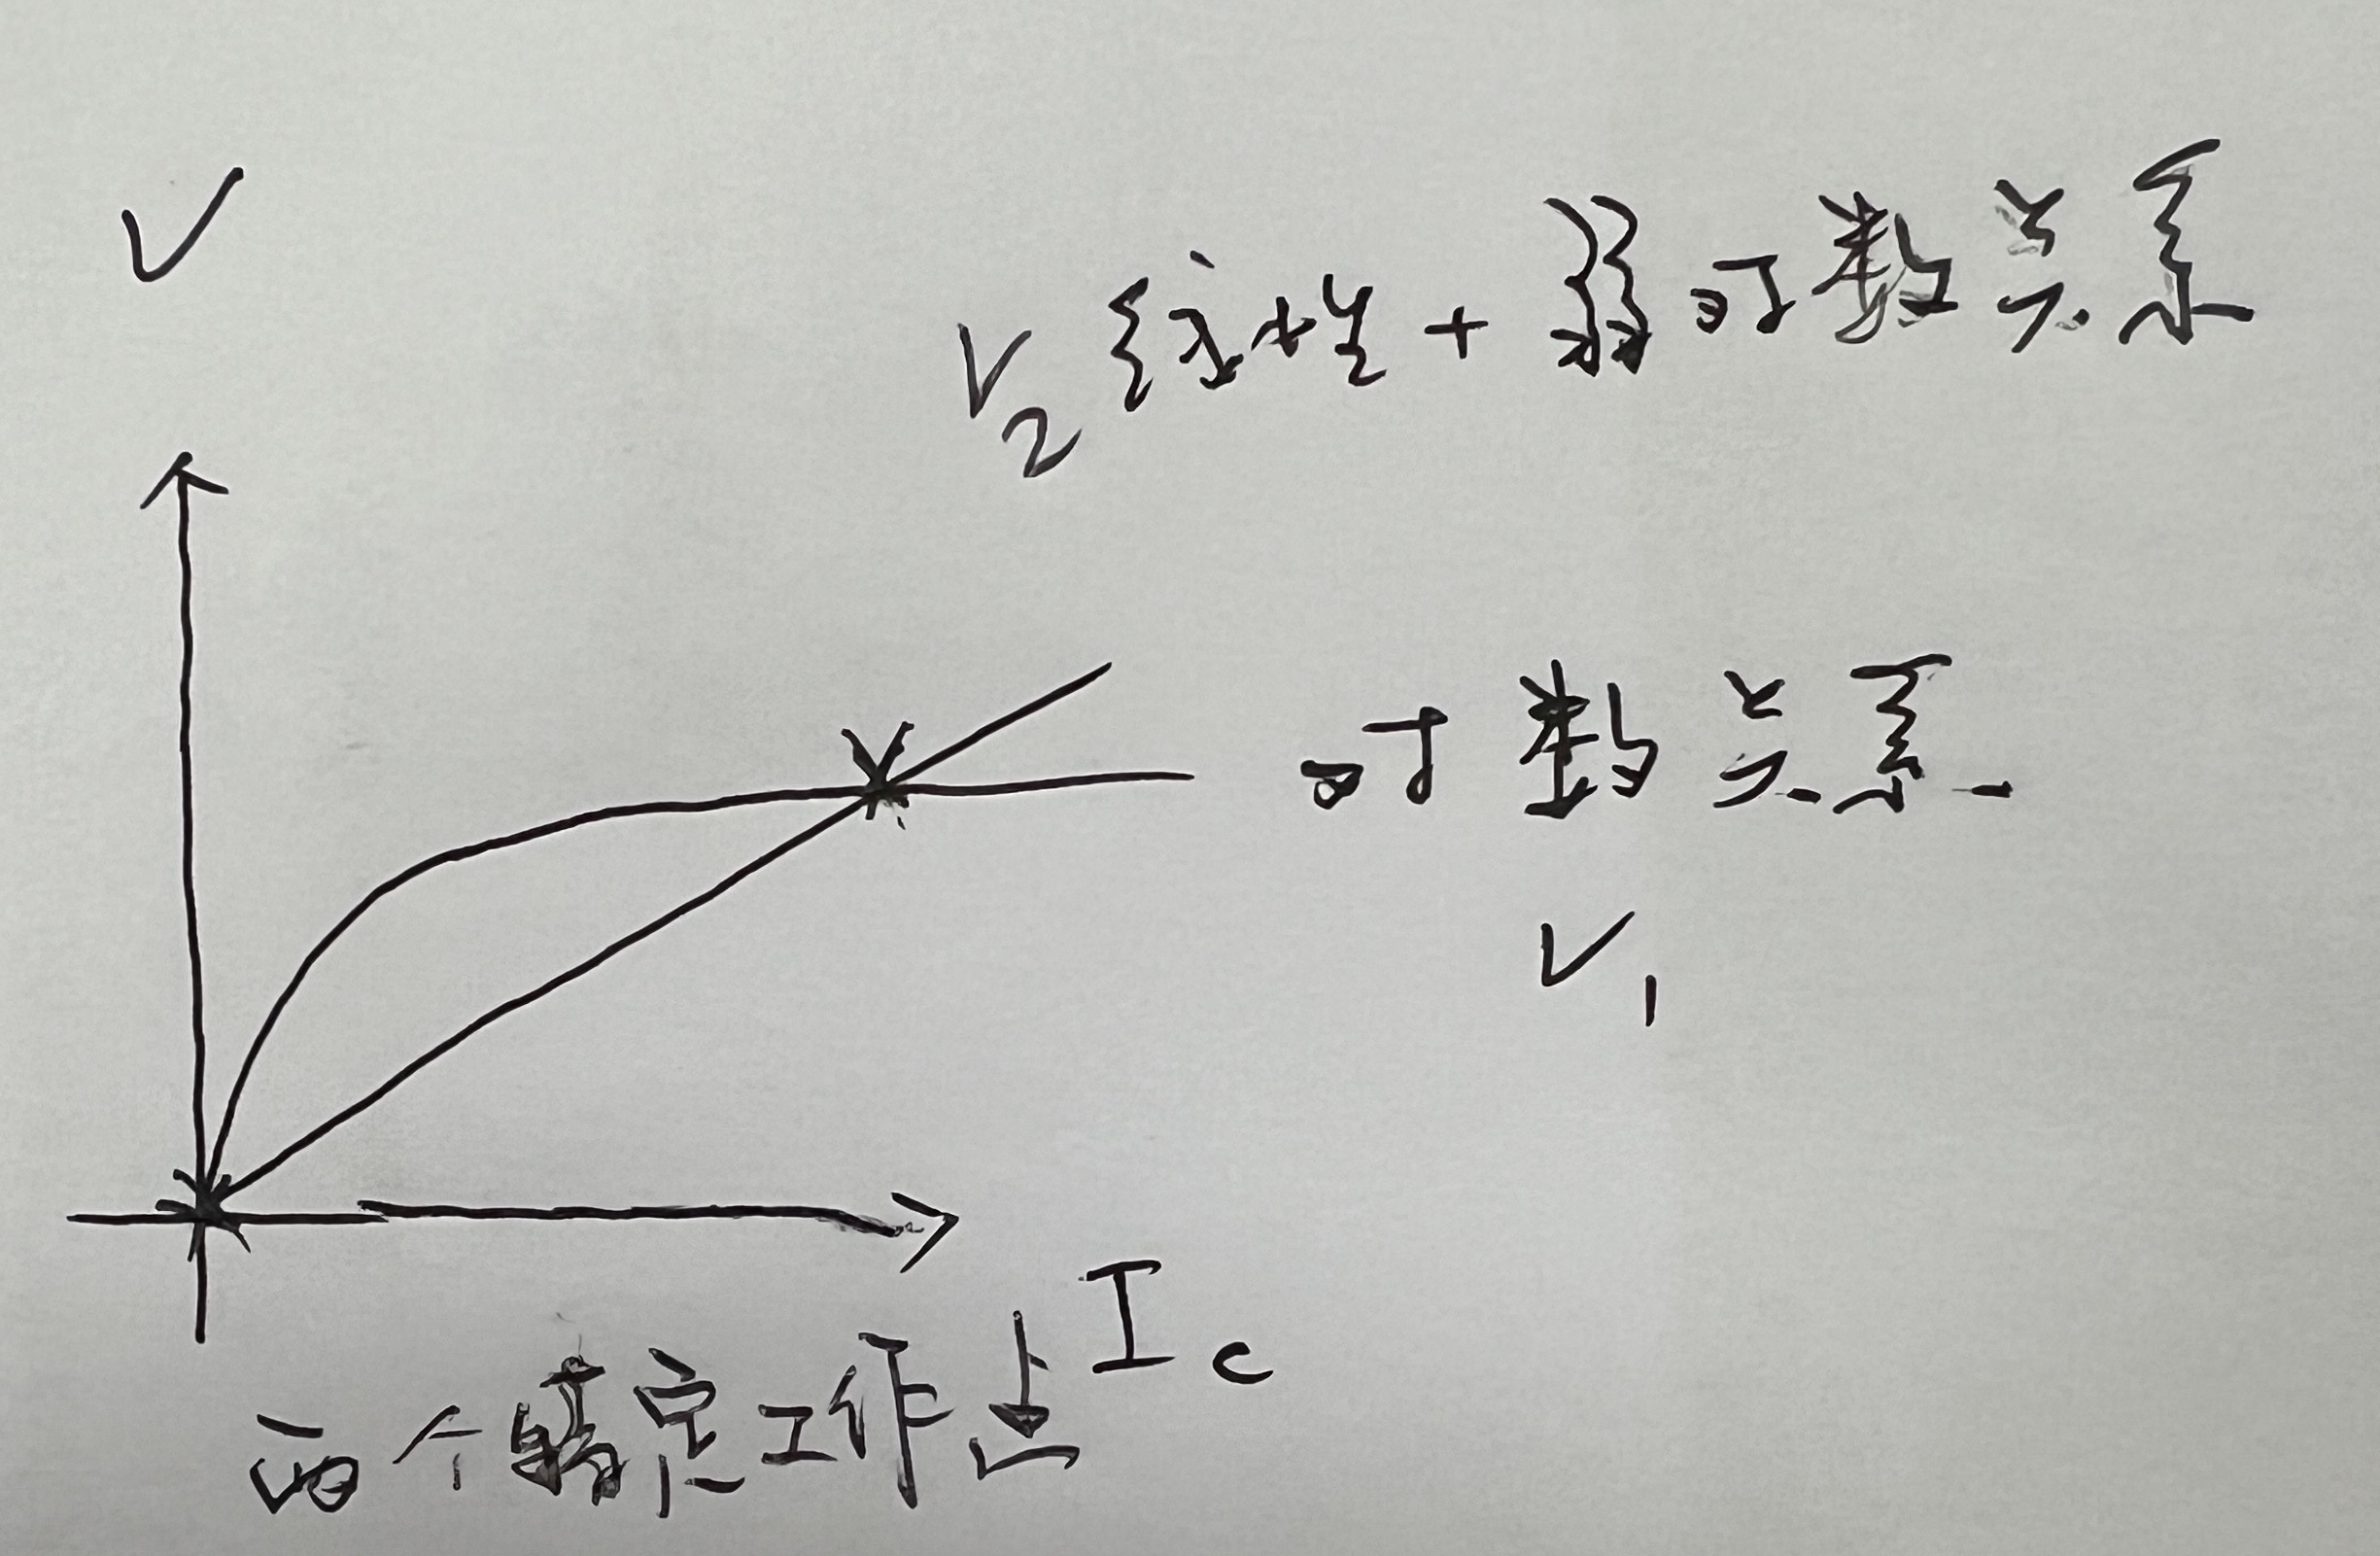 V
V2 线性+弱对数关系
对数关系
V1
Ic
两个稳定工作点